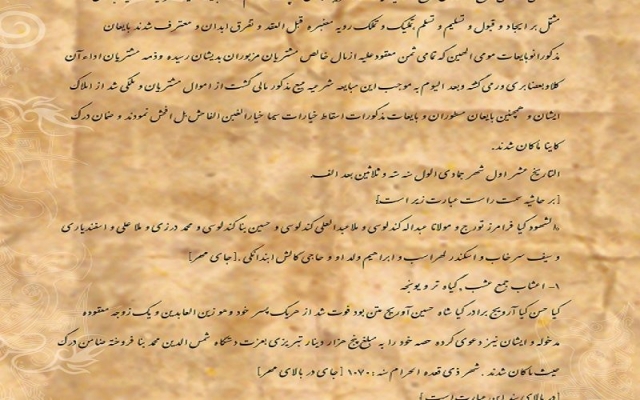 مشتمل بر ایجاد و قبول و تسلیم و تسلم تملیک و تملک رویه معتبره قبل العقد و تفرق ابدان و معترف شدند بایعان
مذکور انو بایعات مومی الیهن که تمامی ثمن معقود علیه از مال خالص مشتریان مزبوران بدیشان رسیده و ذمه مشتریان اداء آن
کلا و بعضا بری و رمی کشه و بعد الیوم به موجب این مبایعه شرعیه مبیع مذکور مالی گشت از اموال مشتریان و ملکی شد از املاک
ایشان و همچنین بایعان مسطوران و بایعات مذکورات اسقاط خیارات سیما خیار الغبن الفاحش بل افحش نمودند و ضمان درک
کاینا ما کان شدند.
التاریخ عشر اول شهر جمادی الاول سنه سته و ثلاثین بعد الالف.
[بر حاشیه سمت راست عبارت زیر است]
،الشهود کیا فرامرز تورج و مولانا عبداله کندلوسی و ملا عبدالعلی کندلوسی و حسین بنا کندلوسی و محمد درزی و ملا علی و اسفندیاری
و سیف سرخاب و اسکندر لهراسب و ابراهیم ولد او و حاجی کالش ابندانکی .[جای مهر]
۱- اعشاب جمع عشب ،گیاه تر و یونجه
کیا حسن کیا آرویج برادر کیا شاه حسین آورویج متن بود فوت شد از هریک پسر خود و هو زین العابدین و یک زوجه معقوده
مدخوله و ایشان نیز دعوی کرده حصه خود را به مبلغ پنج هزار دینار تبریزی بعزت دستگاه شمس الدین محمد بنا فروخته ضامن درک
حیث ما کان شدند . شهر ذی قعده الحرام سنه :۱۰۷۰ [جای در بالای مهر]
[در بالای سند این عبارت است]